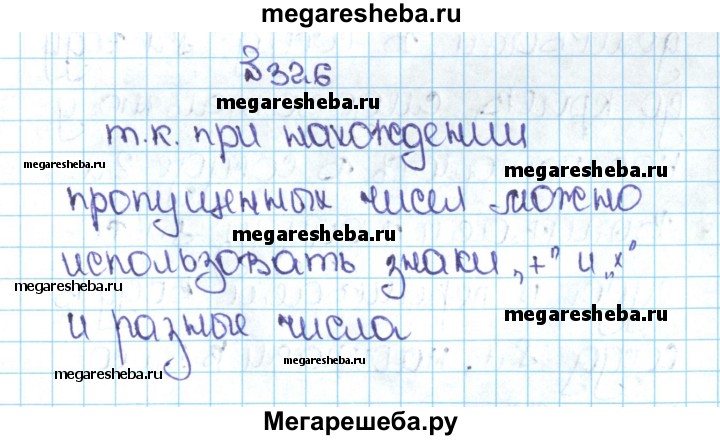 megaresheba.ru
§ 32.6
megaresheba.ru
т.к. при нахождении
megaresheba.ru
megaresheba.ru
пропущенных чисел можно
megaresheba.ru
использовать знаки „+” и „×”
megaresheba.ru
и разные числа
megaresheba.ru
megaresheba.ru
megaresheba.ru
Мегарешеба.ру